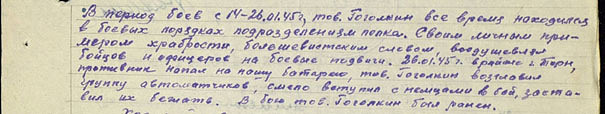 В период боев с 14-26.01.45г, тов. Гоголкин все время находился
в боевых порядках подразделениям полка. Своим личным при-
мером храбрости, большевистским словом, воодушевлял
бойцов и офицеров на боевые подвиги. 26.01.45г. в районе г. Торн,
противник напал на нашу батарею, тов. Гоголкин возглавил
группу автоматчиков, смело вступил с немцами в бой, заста-
вил их бежать. В бою тов. Гоголкин был ранен.